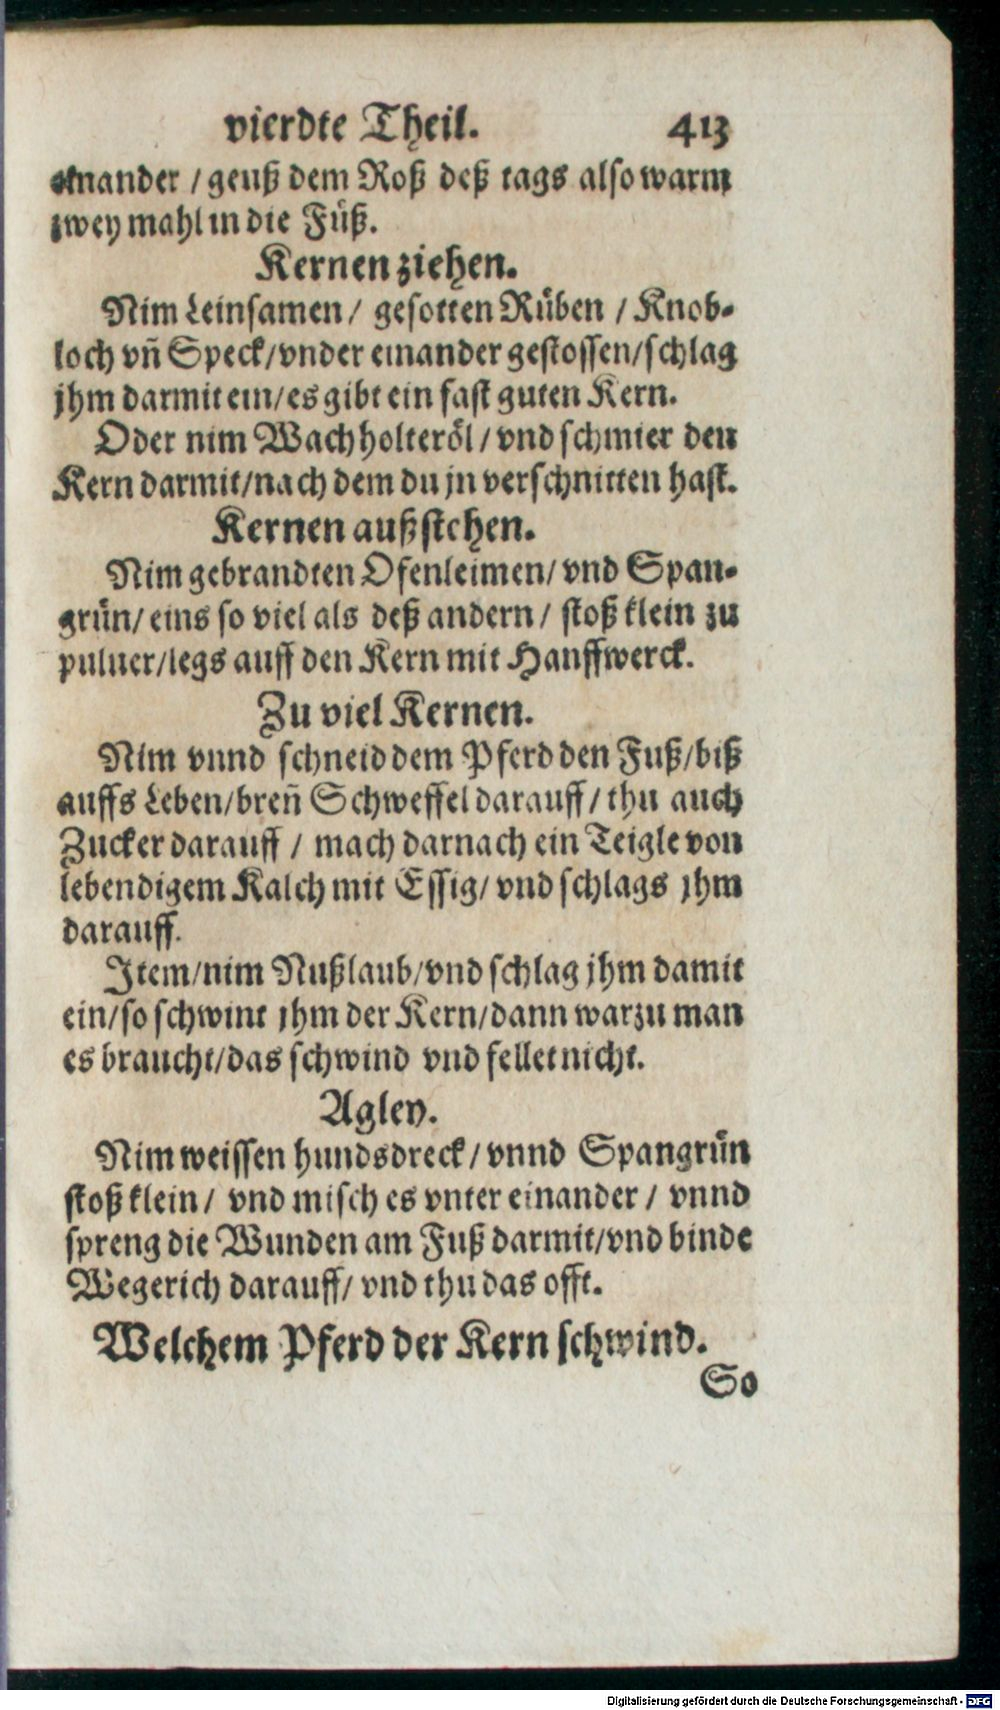 vierdte Theil. 413
einander / geuß dem Roß deß tags also warm
zwey mahl in die Füß.
Kernen ziehen.
Nim Leinsamen / gesotten Rüben / Knob-
loch vñ Speck / vnder einander gestossen / schlag
jhm darmit ein / es gibt ein fast guten Kern.
Oder nim Wachholteröl / vnd schmier den
Kern darmit / nach dem du jn verschnitten hast.
Kernen außstehen.
Nim gebrandten Ofenleimen / vnd Span-
grün / eins so viel als deß andern / stoß klein zu
puluer / legs auff den Kern mit Hanffwerck.
Zu viel Kernen.
Nim vnnd schneid dem Pferd den Fuß / biß
auffs Leben / breñ Schweffel darauff / thu auch
Zucker darauff / mach darnach ein Teigle von
lebendigem Kalch mit Essig / vnd schlags jhm
darauff.
Item / nim Nußlaub / vnd schlag jhm damit
ein / so schwint jhm der Kern / dann warzu man
es braucht / das schwind vnd fellet nicht.
Agley.
Nim weissen hundsdreck / vnnd Spangrün
stoß klein / vnd misch es vnter einander / vnnd
spreng die Wunden am Fuß darmit / vnd binde
Wegerich darauff / vnd thu das offt.
Welchem Pferd der Kern schwind.
So
Digitalisierung gefördert durch die Deutsche Forschungsgemeinschaft - DFG